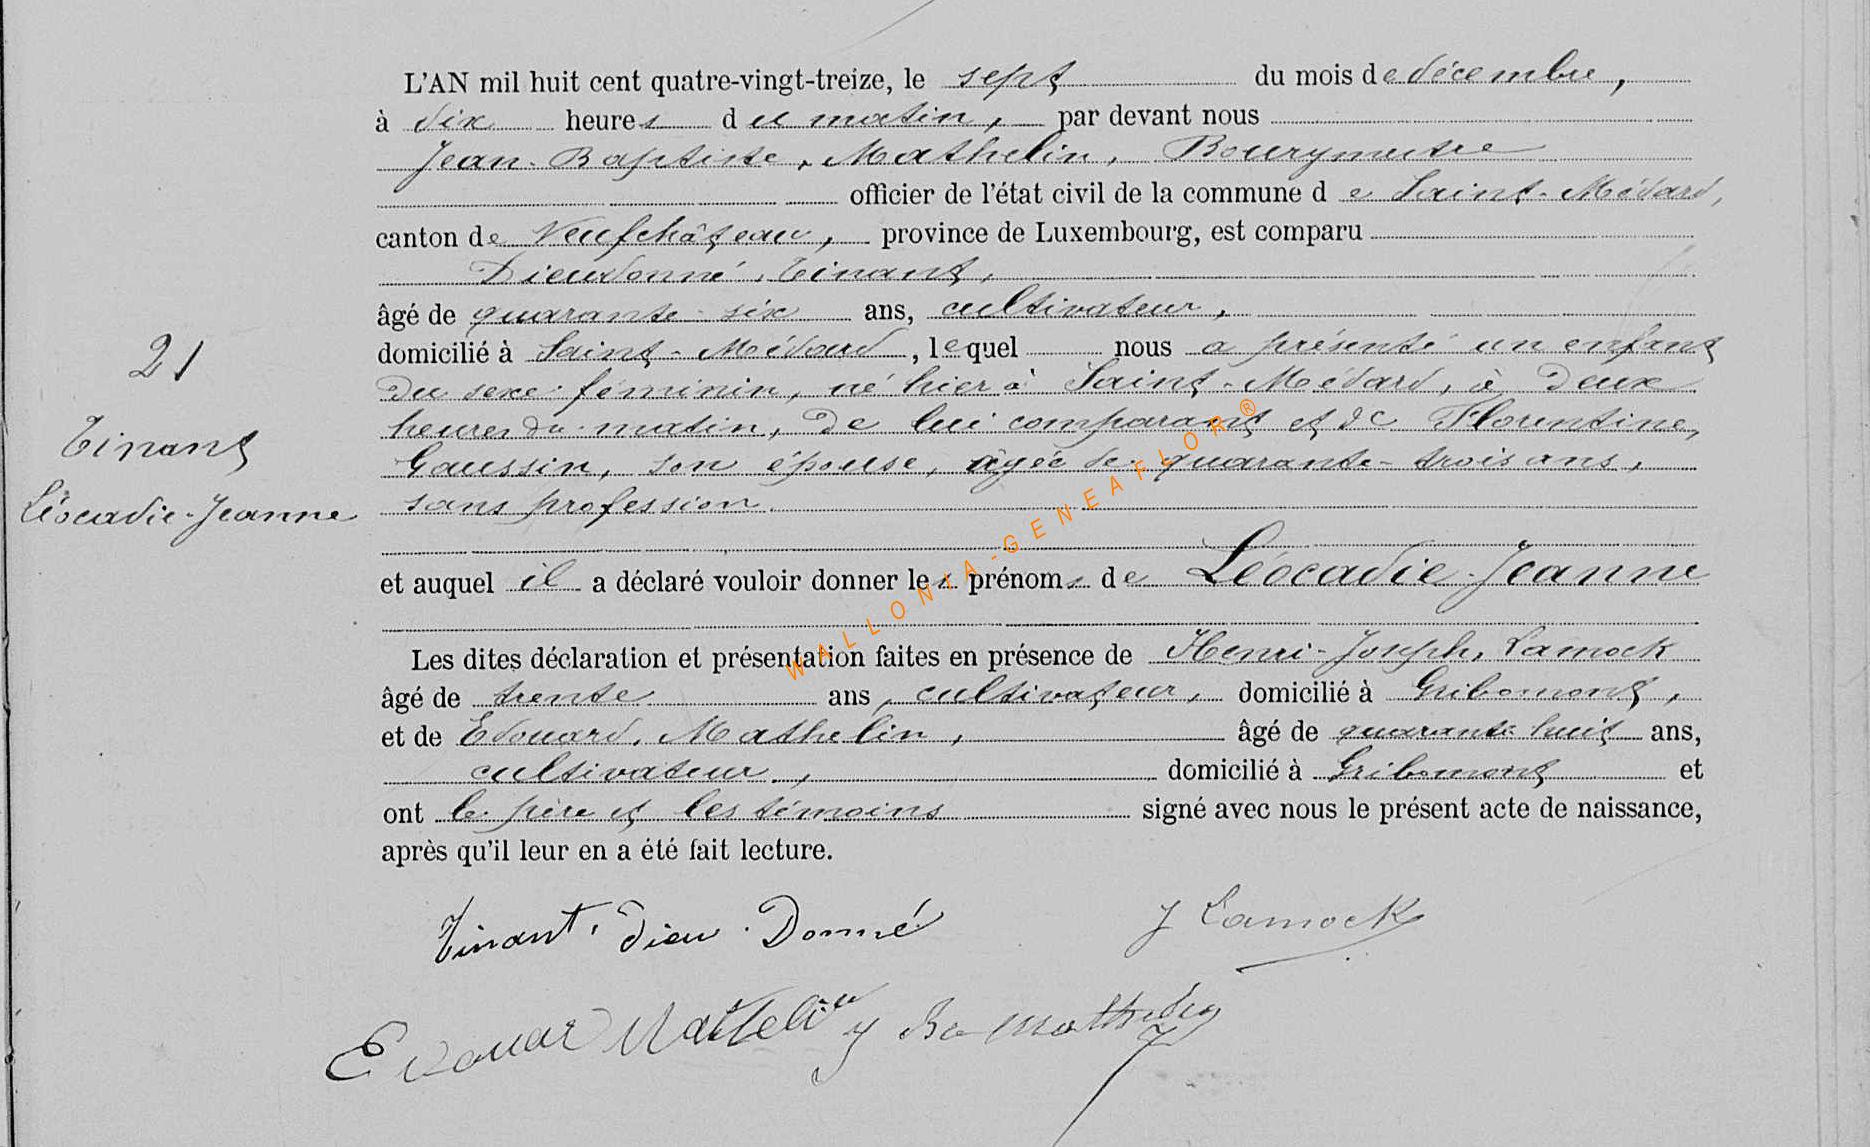 L'AN mil huit cent quatre-vingt-treize, le sept du mois de décembre,
à dix heures du matin, par devant nous
Jean-Baptiste, Mathelin, Bourgmestre
officier de l'état civil de la commune de Saint-Médard,
canton de Neufchâteau, province de Luxembourg, est comparu
Dieudonné, Tinant,
âgé de quarante-six ans, cultivateur,
21
domicilié à Saint-Médard, lequel nous a présenté un enfant
du sexe féminin, né hier à Saint-Médard, à deux
Tinant
heures du matin, de lui comparant et de Florentine,
Gaussin, son épouse, âgée de quarante-trois ans,
Léocadie-Jeanne
sans profession.
et auquel il a déclaré vouloir donner les prénoms de Léocadie-Jeanne
Les dites déclaration et présentation faites en présence de Henri-Joseph, Lamock
âgé de trente ans, cultivateur, domicilié à Gribomont,
et de Edouard, Mathelin, âgé de quarante huit ans,
cultivateur, domicilié à Gribomont et
ont le père et les témoins signé avec nous le présent acte de naissance,
après qu'il leur en a été fait lecture.
Tinant, Dieu. Donné
J Lamock
Edouar Mathelin J Ba Mathelin
WALLONIA-GENEAFLOR®